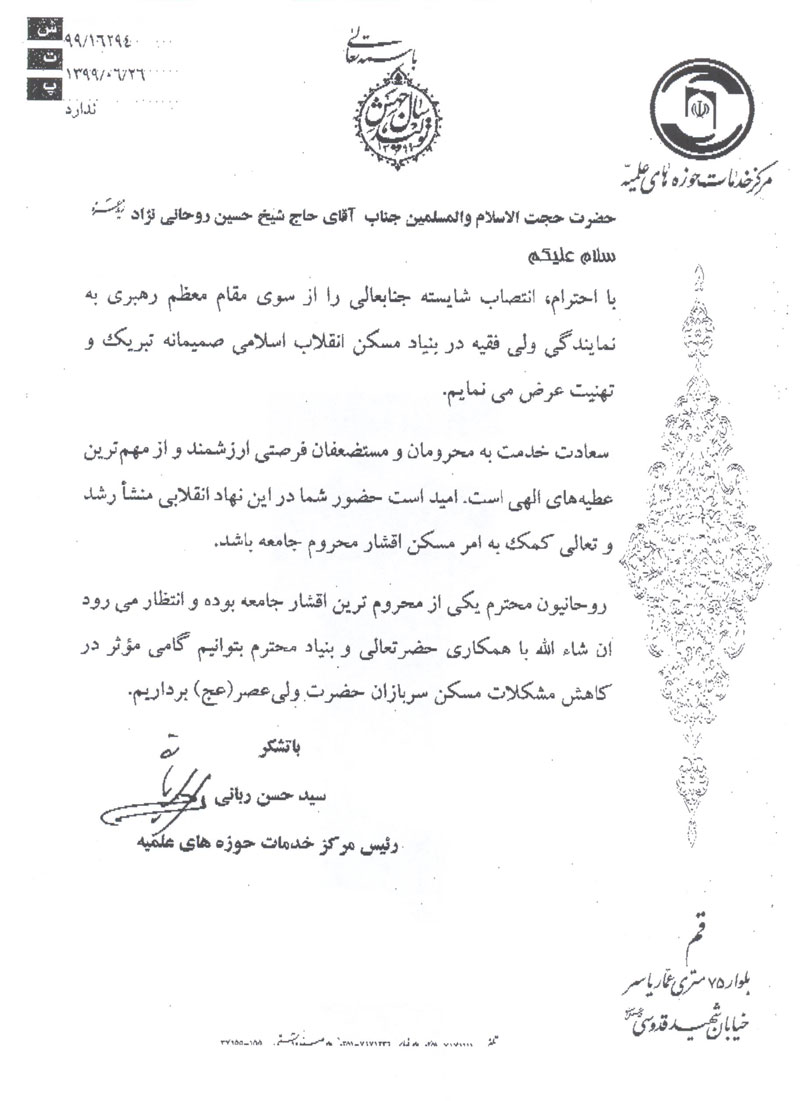 باسمه تعالی
ش ۹۹/۱۶۲۹۴۰
ت ۱۳۹۹/۰۶/۲۶
پ ندارد
سال جهش
تولید
۱۳۹۹
مرکز خدمات حوزه های علمیه
حضرت حجت الاسلام والمسلمین جناب آقای حاج شیخ حسین روحانی نژاد
سلام علیکم
با احترام، انتصاب شایسته جنابعالی را از سوی مقام معظم رهبری به
نمایندگی ولی فقیه در بنیاد مسکن انقلاب اسلامی صمیمانه تبریک و
تهنیت عرض می نمایم.
سعادت خدمت به محرومان و مستضعفان فرصتی ارزشمند و از مهم‌ترین
عطیه‌های الهی است. امید است حضور شما در این نهاد انقلابی منشأ رشد
و تعالی کمک به امر مسکن اقشار محروم جامعه باشد.
روحانیون محترم یکی از محروم ترین اقشار جامعه بوده و انتظار می رود
ان شاء الله با همکاری حضرتعالی و بنیاد محترم بتوانیم گامی مؤثر در
کاهش مشکلات مسکن سربازان حضرت ولی‌عصر(عج) برداریم.
باتشکر
سید حسن ربانی
رئیس مرکز خدمات حوزه های علمیه
قم
بلوار ۷۵ متری عمار یاسر
خیابان شهید قدوسی